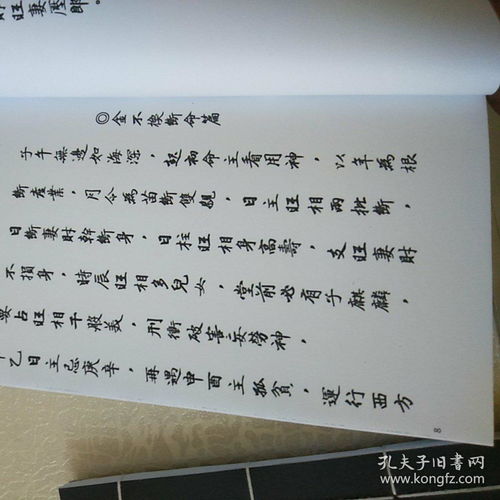 財旺妻壓郎。
◎金不換斷命篇
子午無邊如海深，起兩命主看用神，以年為根
斷產業，月令為苗斷雙親，日主旺相兩批斷，
日斷妻財幹斷身，日柱旺相身高壽，支旺妻財
不損身，時辰旺相多兒女，堂前必有子麒麟，
要占旺相千般美，刑衝破害妄勞神，
甲乙日主忌庚辛，再遇申酉主孤貧，運行西方
8
孔夫子旧書网
www.kongfz.com